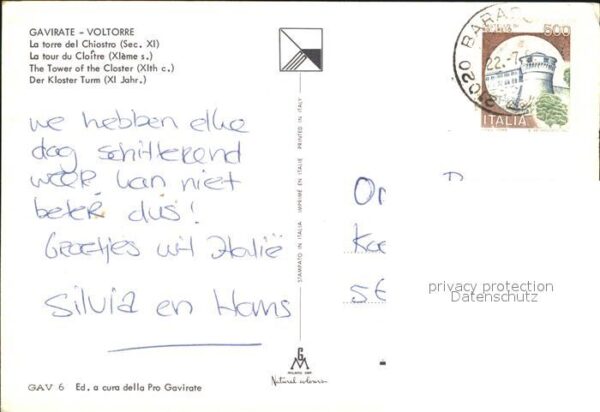 GAVIRATE - VOLTORRE
La torre del Chiostro (Sec. XI)
La tour du Cloître (XIème s.)
The Tower of the Closter (XIth c.)
Der Kloster Turm (XI Jahr.)
500
ITALIA
21020 BARASSO
22.-7.
we hebben elke
dag schitterend
weer, kan niet
beter dus!
Groetjes uit Italië
Silvia en Hans
STAMPATO IN ITALIA IMPRIMÉ EN ITALIE PRINTED IN ITALY
Ka
5
privacy protection
Datenschutz
Natural colours
GAV 6 Ed. a cura della Pro Gavirate